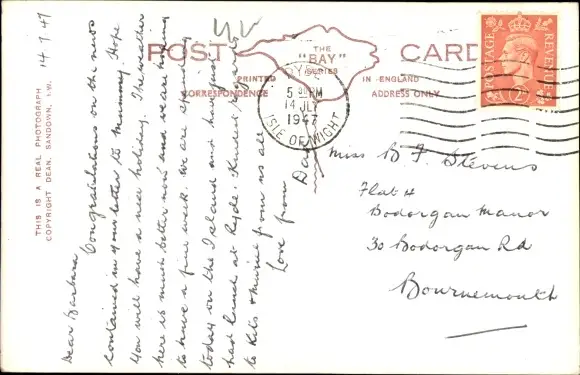 POST CARD
THE
"BAY"
SERIES
PRINTED IN ENGLAND
CORRESPONDENCE ADDRESS ONLY
RYDE
5 30 PM
14 JLY
1947
ISLE OF WIGHT
POSTAGE
REVENUE
THIS IS A REAL PHOTOGRAPH
COPYRIGHT DEAN. SANDOWN, I.W.
14/7/47
Dear Barbara
Congratulations on the news
contained in your letter to Mummy. Hope
you will have a nice holiday. The weather
here is much better now and we are hoping
to have a fine week. We are spending
today on the Island and have just
had lunch at Ryde. Kindest regards
to Kits & Muriel from us all
Love from
Dad
Miss B. F. Stevens
Flat 4
Bodorgan Manor
30 Bodorgan Rd
Bournemouth